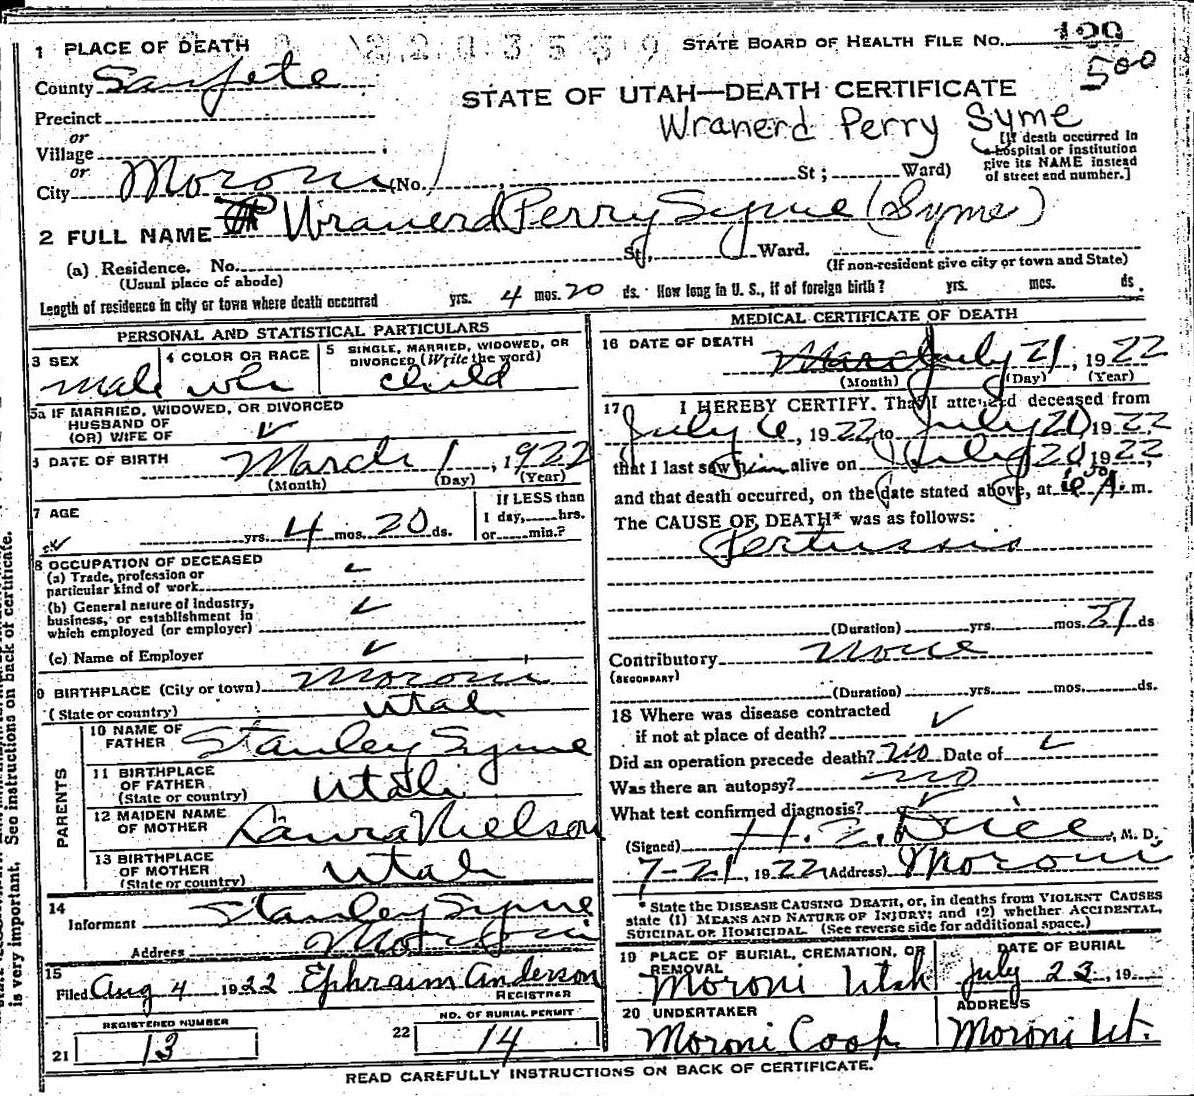 1 PLACE OF DEATH
STATE BOARD OF HEALTH FILE NO. 100
500
County Sanpete
STATE OF UTAH—DEATH CERTIFICATE
Precinct
Wranerd Perry Syme
or
Village
or
City Moroni (No. St; Ward)
[If death occurred in
a hospital or institution
give its NAME instead
of street and number.]
2 FULL NAME Wranerd Perry Syme (Syme)
(a) Residence. No. St, Ward.
(Usual place of abode)
(If non-resident give city or town and State)
Length of residence in city or town where death occurred yrs. 4 mos. 20 ds. How long in U. S., if of foreign birth? yrs. mos. ds.
PERSONAL AND STATISTICAL PARTICULARS
3 SEX
male
4 COLOR OR RACE
whi
5 SINGLE, MARRIED, WIDOWED, OR
DIVORCED (Write the word)
child
5a IF MARRIED, WIDOWED, OR DIVORCED
HUSBAND OF
(OR) WIFE OF
DATE OF BIRTH March 1, 1922
(Month) (Day) (Year)
7 AGE
yrs. 4 mos. 20 ds.
If LESS than
1 day, hrs.
or min.?
8 OCCUPATION OF DECEASED
(a) Trade, profession or
particular kind of work
(b) General nature of industry,
business, or establishment in
which employed (or employer)
(c) Name of Employer
9 BIRTHPLACE (City or town) Moroni
(State or country) Utah
PARENTS
10 NAME OF
FATHER Stanley Syme
11 BIRTHPLACE
OF FATHER
(State or country) Utah
12 MAIDEN NAME
OF MOTHER Laura Nielson
13 BIRTHPLACE
OF MOTHER
(State or country) Utah
14
Informent Stanley Syme
Address Moroni
15
Filed Aug 4 1922 Ephraim Anderson
REGISTRER
REGISTERED NUMBER
21 13
NO. OF BURIAL PERMIT
22 14
MEDICAL CERTIFICATE OF DEATH
16 DATE OF DEATH
March July 21, 1922
(Month) (Day) (Year)
17 I HEREBY CERTIFY. That I attended deceased from
July 6, 1922 to July 20 1922
that I last saw him alive on July 20 1922,
and that death occurred, on the date stated above, at A. m.
The CAUSE OF DEATH* was as follows:
Pertussis
(Duration) yrs. mos. 21 ds
Contributory None
(SECONDARY)
(Duration) yrs. mos. ds.
18 Where was disease contracted
if not at place of death?
Did an operation precede death? no Date of
Was there an autopsy? no
What test confirmed diagnosis?
(Signed) H. Z. Dice, M. D.
7-21, 1922 Address) Moroni
* State the DISEASE CAUSING DEATH, or, in deaths from VIOLENT CAUSES
state (1) MEANS AND NATURE OF INJURY; and (2) whether ACCIDENTAL,
SUICIDAL OR HOMICIDAL. (See reverse side for additional space.)
19 PLACE OF BURIAL, CREMATION, OR
REMOVAL
Moroni Utah
DATE OF BURIAL
July 23, 19
20 UNDERTAKER
Moroni Coop
ADDRESS
Moroni Ut.
READ CAREFULLY INSTRUCTIONS ON BACK OF CERTIFICATE.
is very important. See instructions on back of certificate.